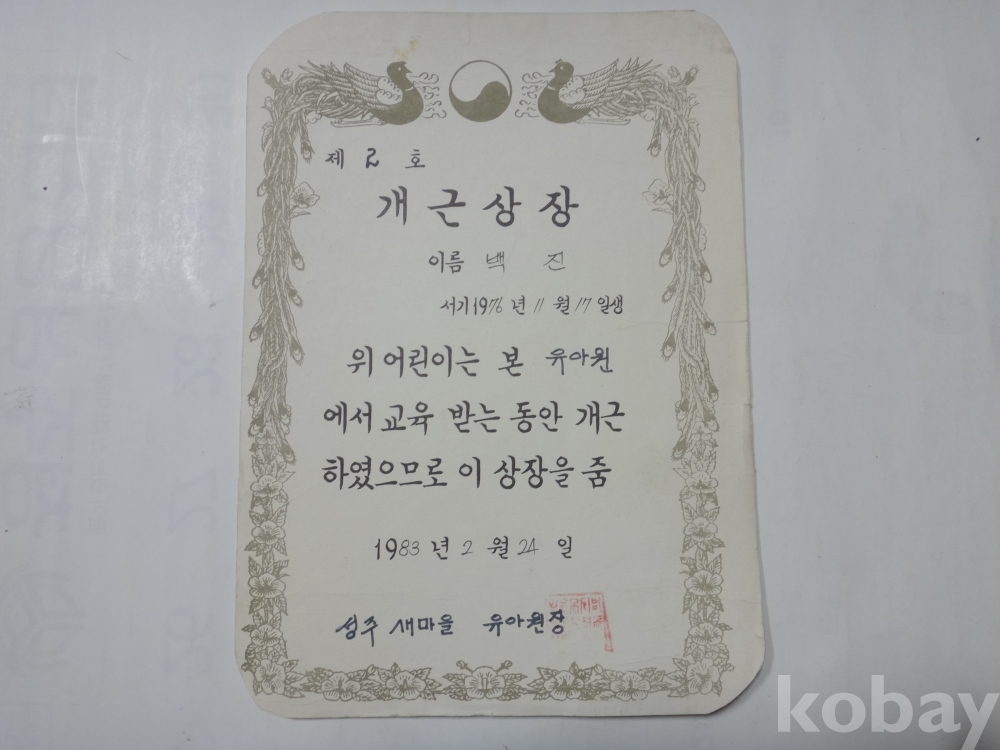 제 2 호
개근상장
이름 백 진
서기1976년 11월 17일생
위 어린이는 본 유아원
에서 교육 받는 동안 개근
하였으므로 이 상장을 줌
1983년 2월 24일
성주 새마을 유아원장
kobay